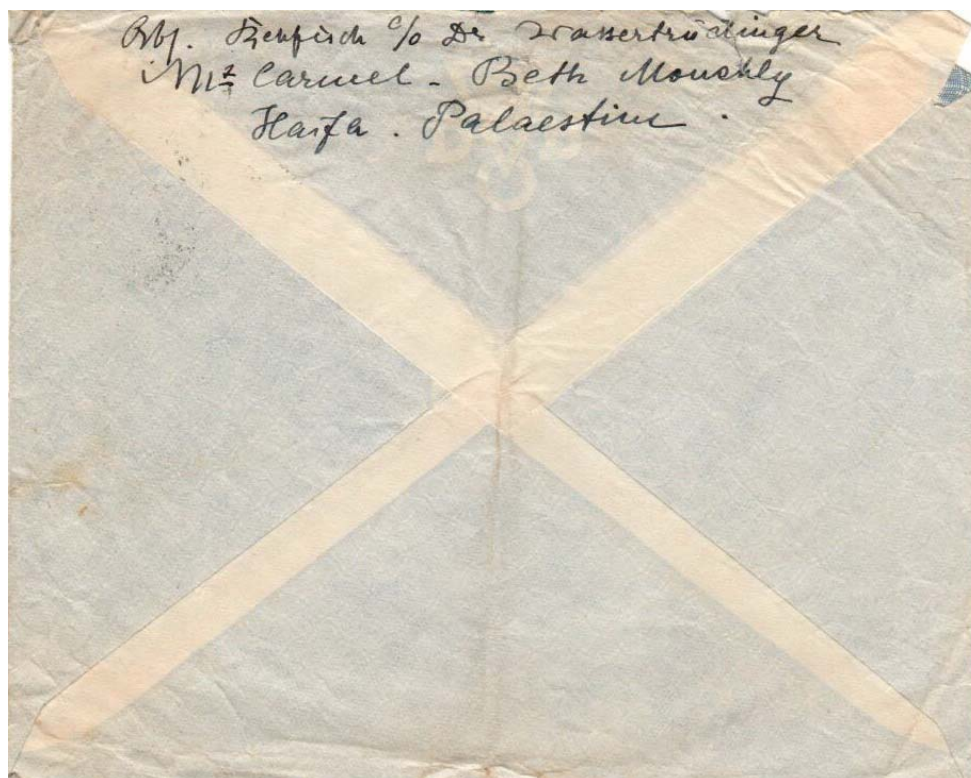 Abs. Rehfisch c/o Dr Wassertrüdinger
Mt Carmel - Beth Mouchly
Haifa . Palaestina .